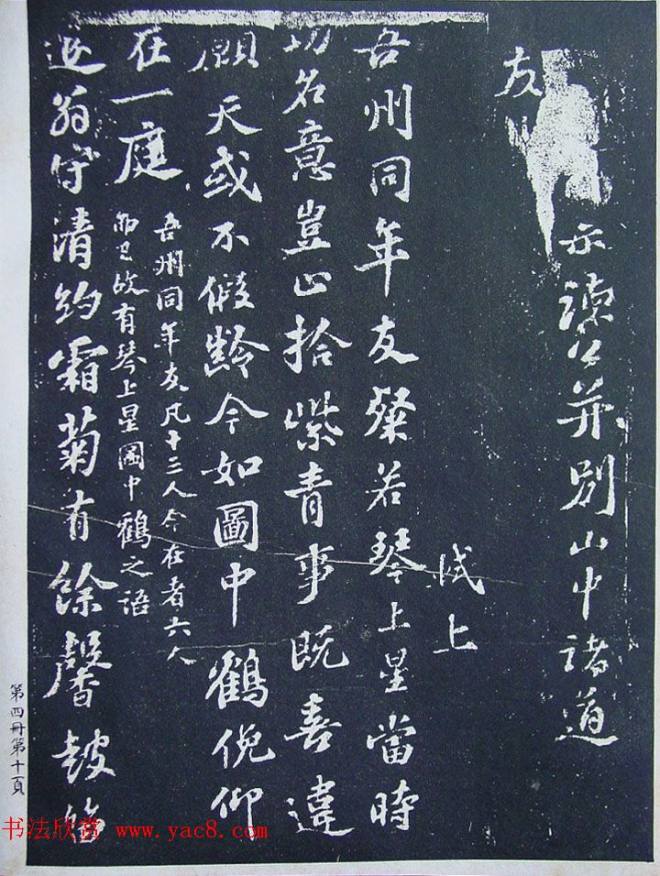 示公并別山中諸道
友
軾上
吾州同年友粲若琴上星當時
功名意豈止拾紫青事既喜違
願天或不假齡今如圖中鶴俛仰
在一庭
吾州同年友凡十三人今在者六人
而已故有琴上星圖中鶴之語
退翁守清約霜菊有餘馨鼓笛
第四冊第十頁
书法欣赏 www.yac8.com